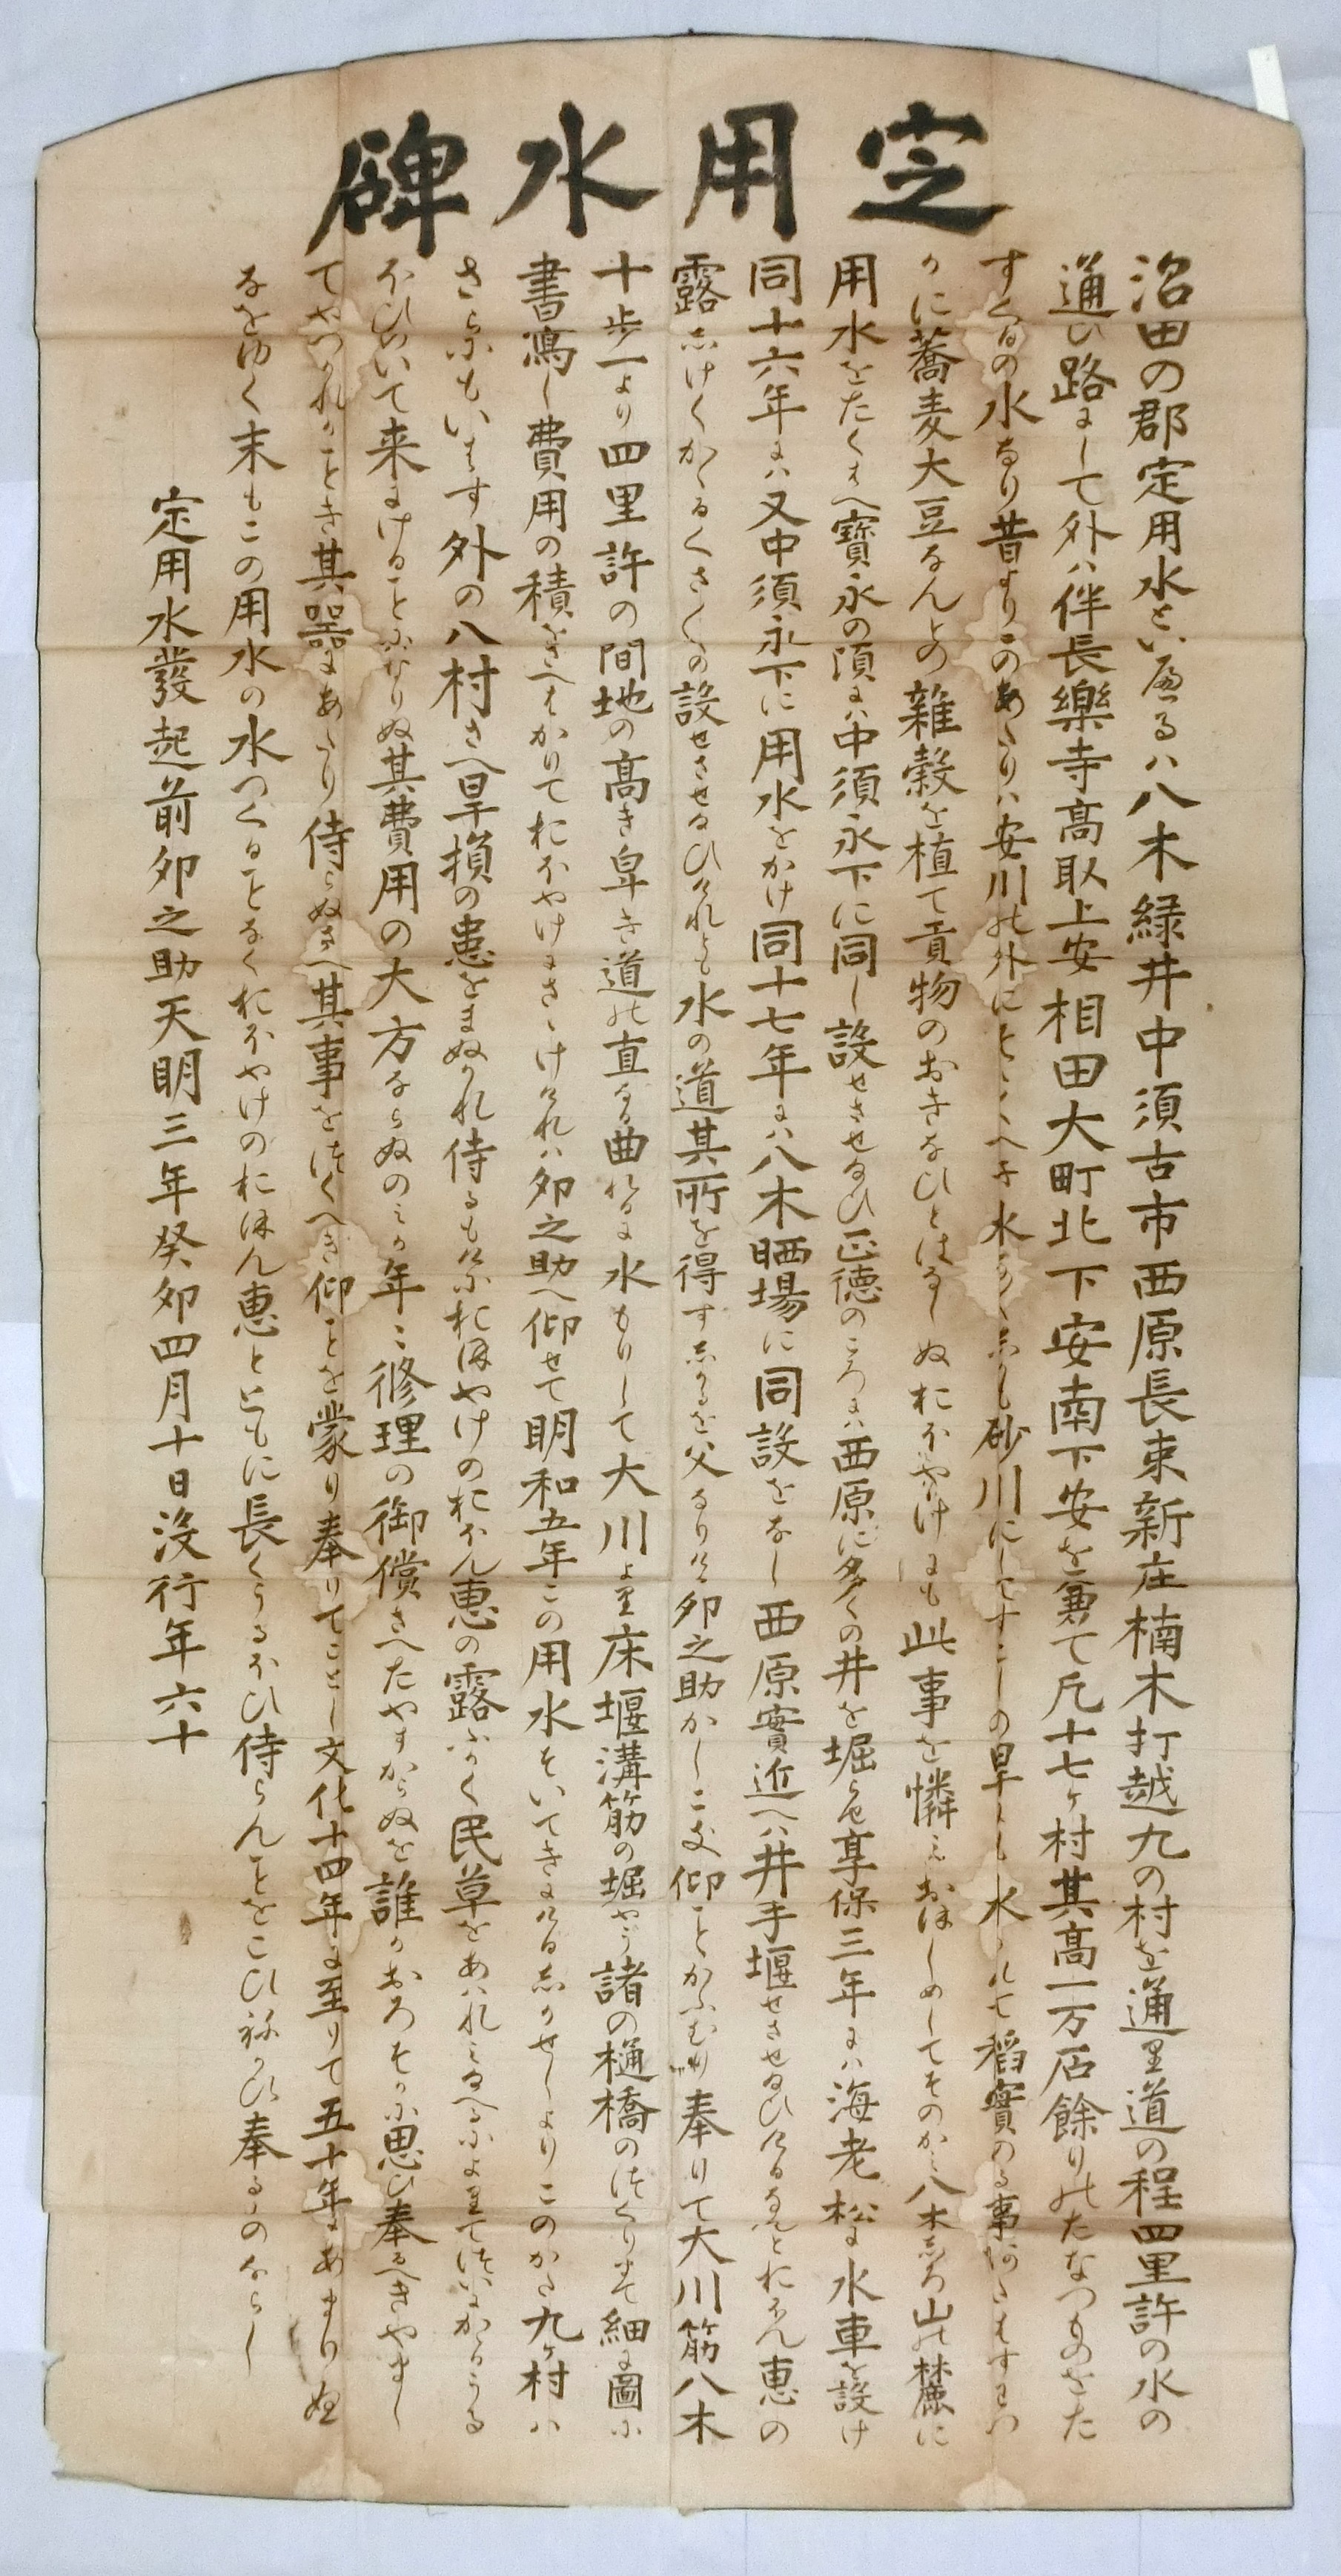 定用水碑
沼田の郡定用水といへるハ八木緑井中須古市西原長束新庄楠木打越九の村を通里道の程四里許の水の
通ひ路にして外ハ伴長樂寺高取上安相田大町北下安南下安を兼て凡十七ケ村其高一万石餘りのたなつものをた
すくるの水なり昔よりこのあたりハ安川の外にとくへき水なくしかも砂川にしてすこしの旱にも水かれて稲實のる事あたはすわつ
かに蕎麦大豆なんとの雑穀を植て貢物のおきなひとはなしぬおほやけにも此事を憐ミおほしめしてそのかミ八木しろ山の麓に
用水をたくはへ寳永の頃にハ中須永下に同し設せさせ給ひ正徳のころにハ西原に多くの井を堀らせ享保三年にハ海老松に水車を設け
同十六年にハ又中須永下に用水をかけ同十七年にハ八木晒場に同設をなし西原實近へハ井手堰せさせ給ひける なとおほん恵の
露しけくかゝるくさくさの設せさせ給ひけれとも水の道其所を得すしかるを父なりける卯之助かしこき仰ことかふむり奉りて大川筋八木
十歩一より四里許の間地の高き卑き道の直なる曲れるに水もりして大川より床堰溝筋の堀やう諸の樋橋のつくりまて細に圖に
書寫し費用の積をさへはかりておほやけにさゝけけれハ卯之助へ仰せて明和五年この用水そいてきにけるしかせしよりこのかた九ケ村ハ
さらにもいはす外の八村さへ旱損の患をまぬかれ侍るもけにおほやけのおほん恵の露ふかく民草をあハれミ給へるによりてつひにかゝるうる
ほひいて来にけることになりぬ其費用の大方ならぬのミか年ミ修理の御償さへたやすからぬを誰かおろそかに思ひ奉るへきやまし
てやつかれかことき其器にあたり侍らぬさへ其事をつくへき仰ことを蒙り奉りてことし文化十四年に至りて五十年にあまりぬ
なをゆく末もこの用水の水つくることなくおほやけのおほん恵とともに長くうるほひ侍らんことをこひねかひ奉るものならし
定用水發起前卯之助天明三年癸卯四月十日没行年六十